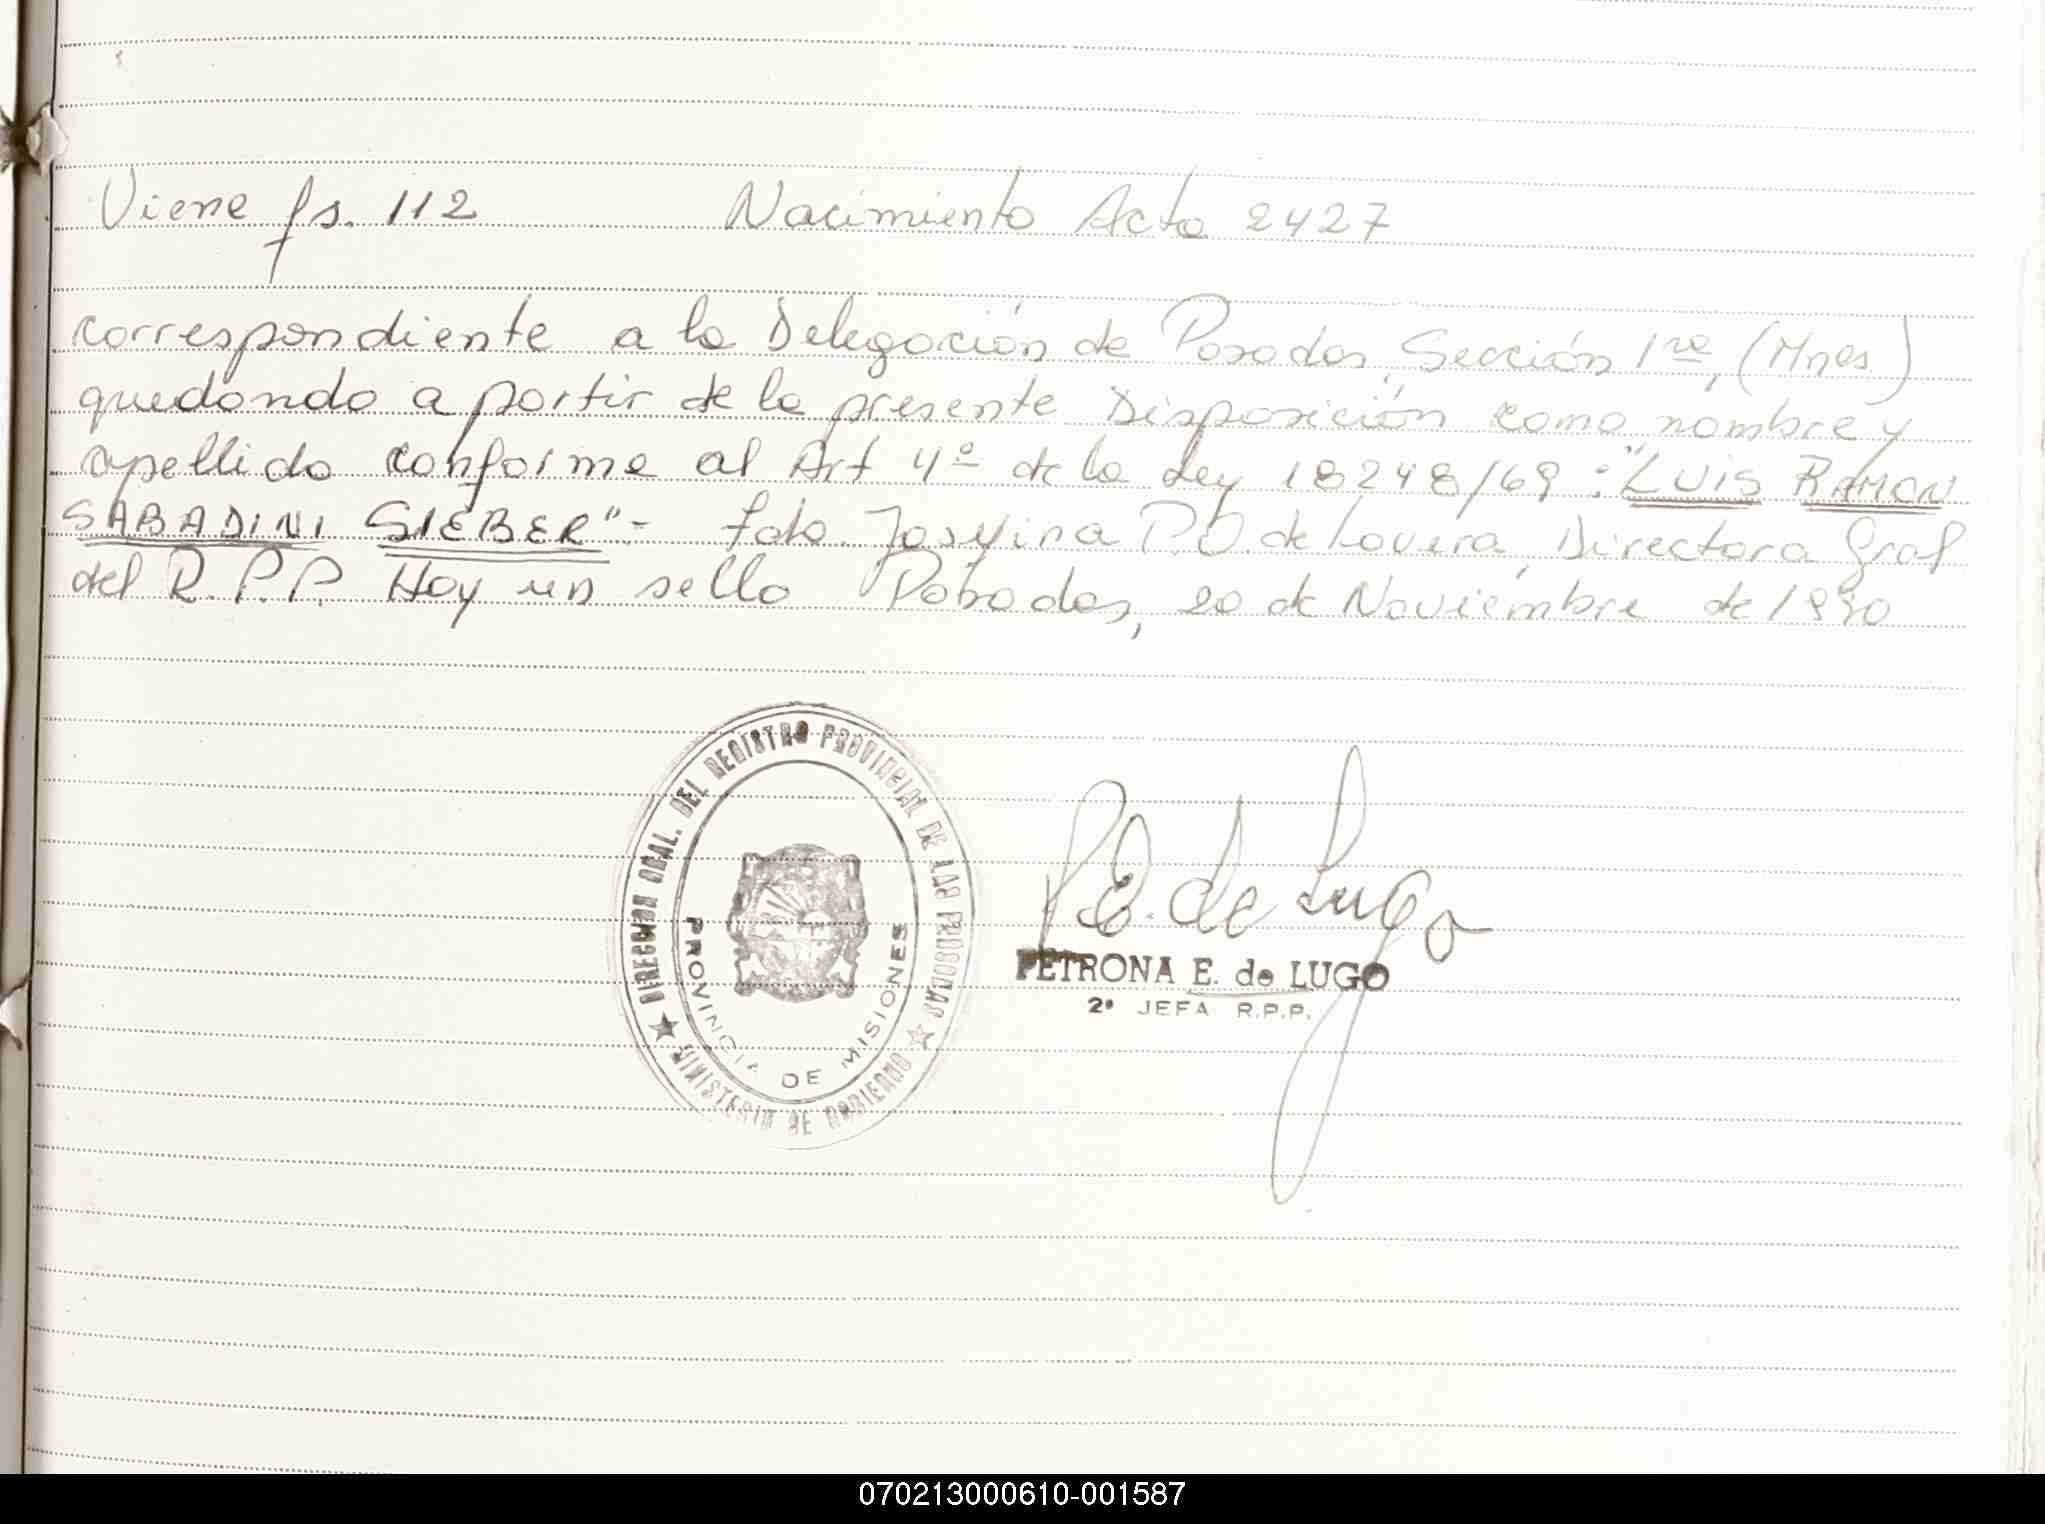 Viene fs. 112 Nacimiento Acta 2427
correspondiente a la Delegación de Posadas, Sección 1ra, (Mnes)
quedando a partir de la presente Disposición como nombre y
apellido conforme al Art 4º de la Ley 18248/69 : "LUIS RAMON
SABADINI SIEBER" - fdo. Josefina P.O. de Lovera, Directora Gral
del R.P.P. Hay un sello Posadas, 20 de Noviembre de 1990
DIRECCION GRAL. DEL REGISTRO PROVINCIAL DE LAS PERSONAS
PROVINCIA DE MISIONES
MINISTERIO DE GOBIERNO
P.E. de Lugo
PETRONA E. de LUGO
2ª JEFA R.P.P.
070213000610-001587